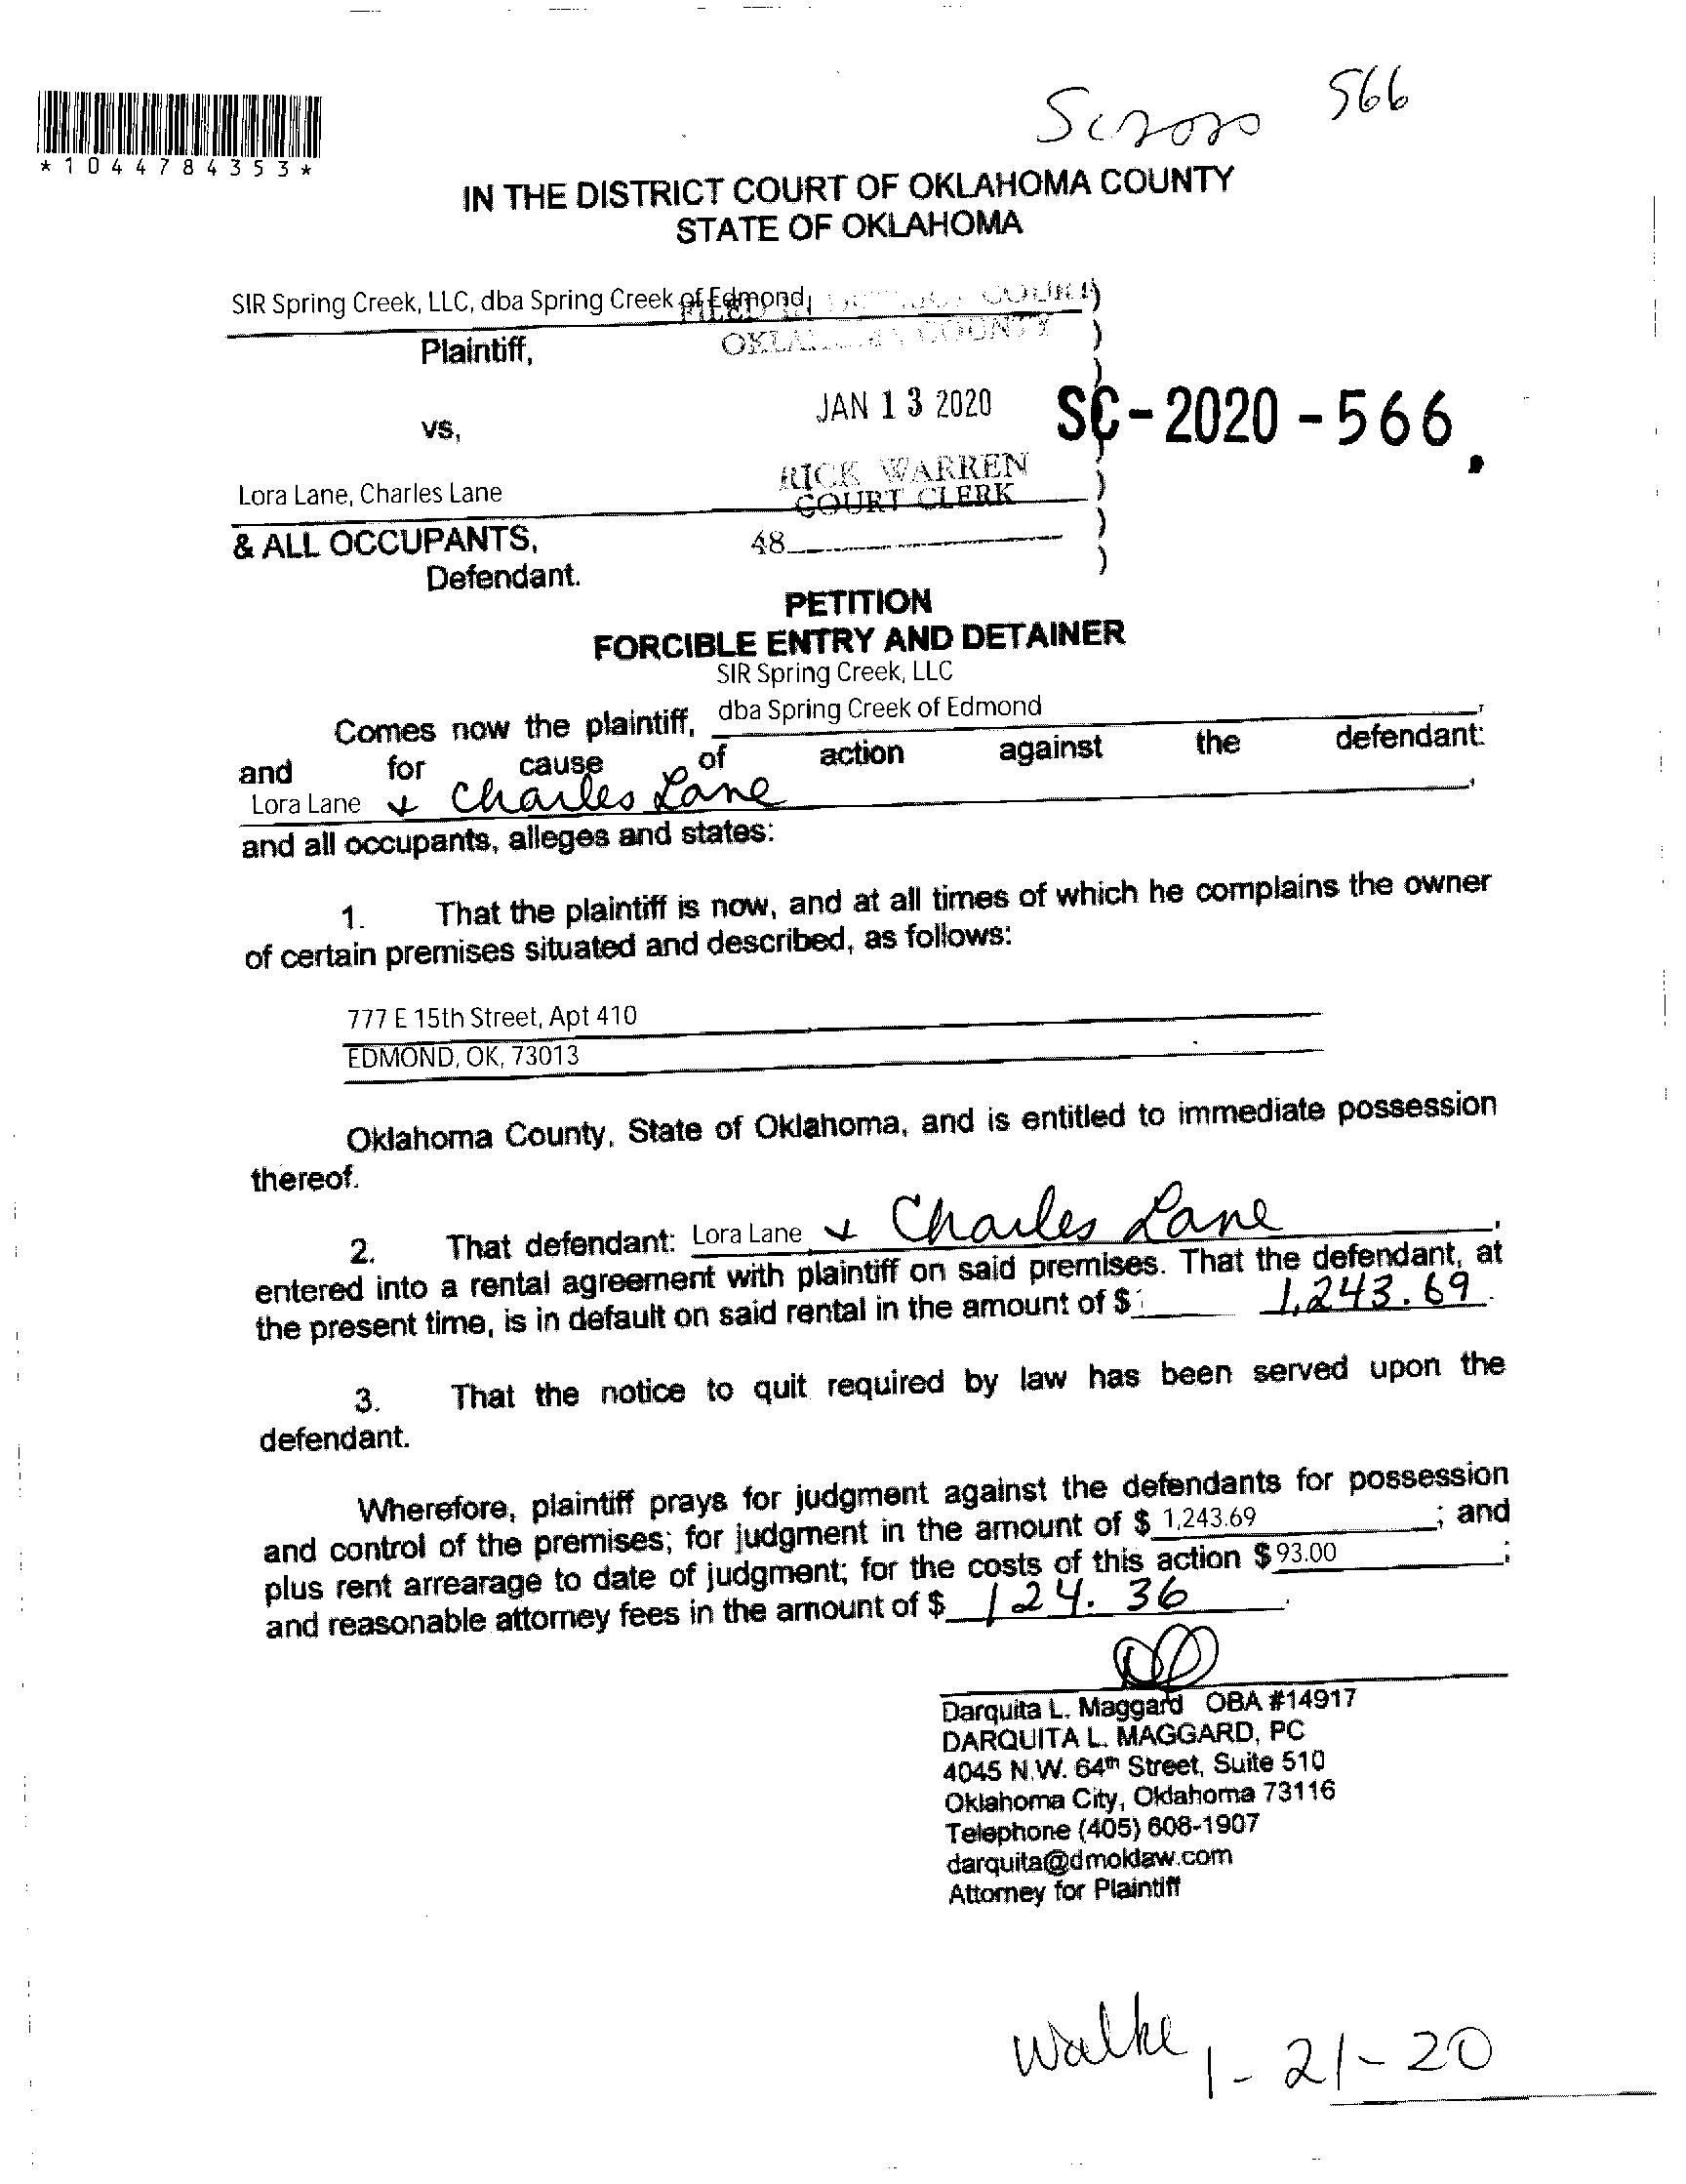 566
SC2020
*1044784353*
IN THE DISTRICT COURT OF OKLAHOMA COUNTY
STATE OF OKLAHOMA
SIR Spring Creek, LLC, dba Spring Creek of Edmond,
FILED IN DISTRICT COURT
OKLAHOMA COUNTY
Plaintiff,
JAN 13 2020
SC-2020-566
vs,
RICK WARREN
COURT CLERK
Lora Lane, Charles Lane
& ALL OCCUPANTS,
48
Defendant.
PETITION
FORCIBLE ENTRY AND DETAINER
SIR Spring Creek, LLC
Comes now the plaintiff, dba Spring Creek of Edmond,
and for cause of action against the defendant:
Lora Lane & Charles Lane,
and all occupants, alleges and states:
1. That the plaintiff is now, and at all times of which he complains the owner
of certain premises situated and described, as follows:
777 E 15th Street, Apt 410
EDMOND, OK, 73013
Oklahoma County, State of Oklahoma, and is entitled to immediate possession
thereof.
2. That defendant: Lora Lane & Charles Lane,
entered into a rental agreement with plaintiff on said premises. That the defendant, at
the present time, is in default on said rental in the amount of $ 1,243.69.
3. That the notice to quit required by law has been served upon the
defendant.
Wherefore, plaintiff prays for judgment against the defendants for possession
and control of the premises; for judgment in the amount of $ 1,243.69; and
plus rent arrearage to date of judgment; for the costs of this action $93.00;
and reasonable attorney fees in the amount of $ 124.36.
Darquita L. Maggard OBA #14917
DARQUITA L. MAGGARD, PC
4045 N.W. 64th Street, Suite 510
Oklahoma City, Oklahoma 73116
Telephone (405) 608-1907
darquita@dmoklaw.com
Attorney for Plaintiff
Walke 1-21-20